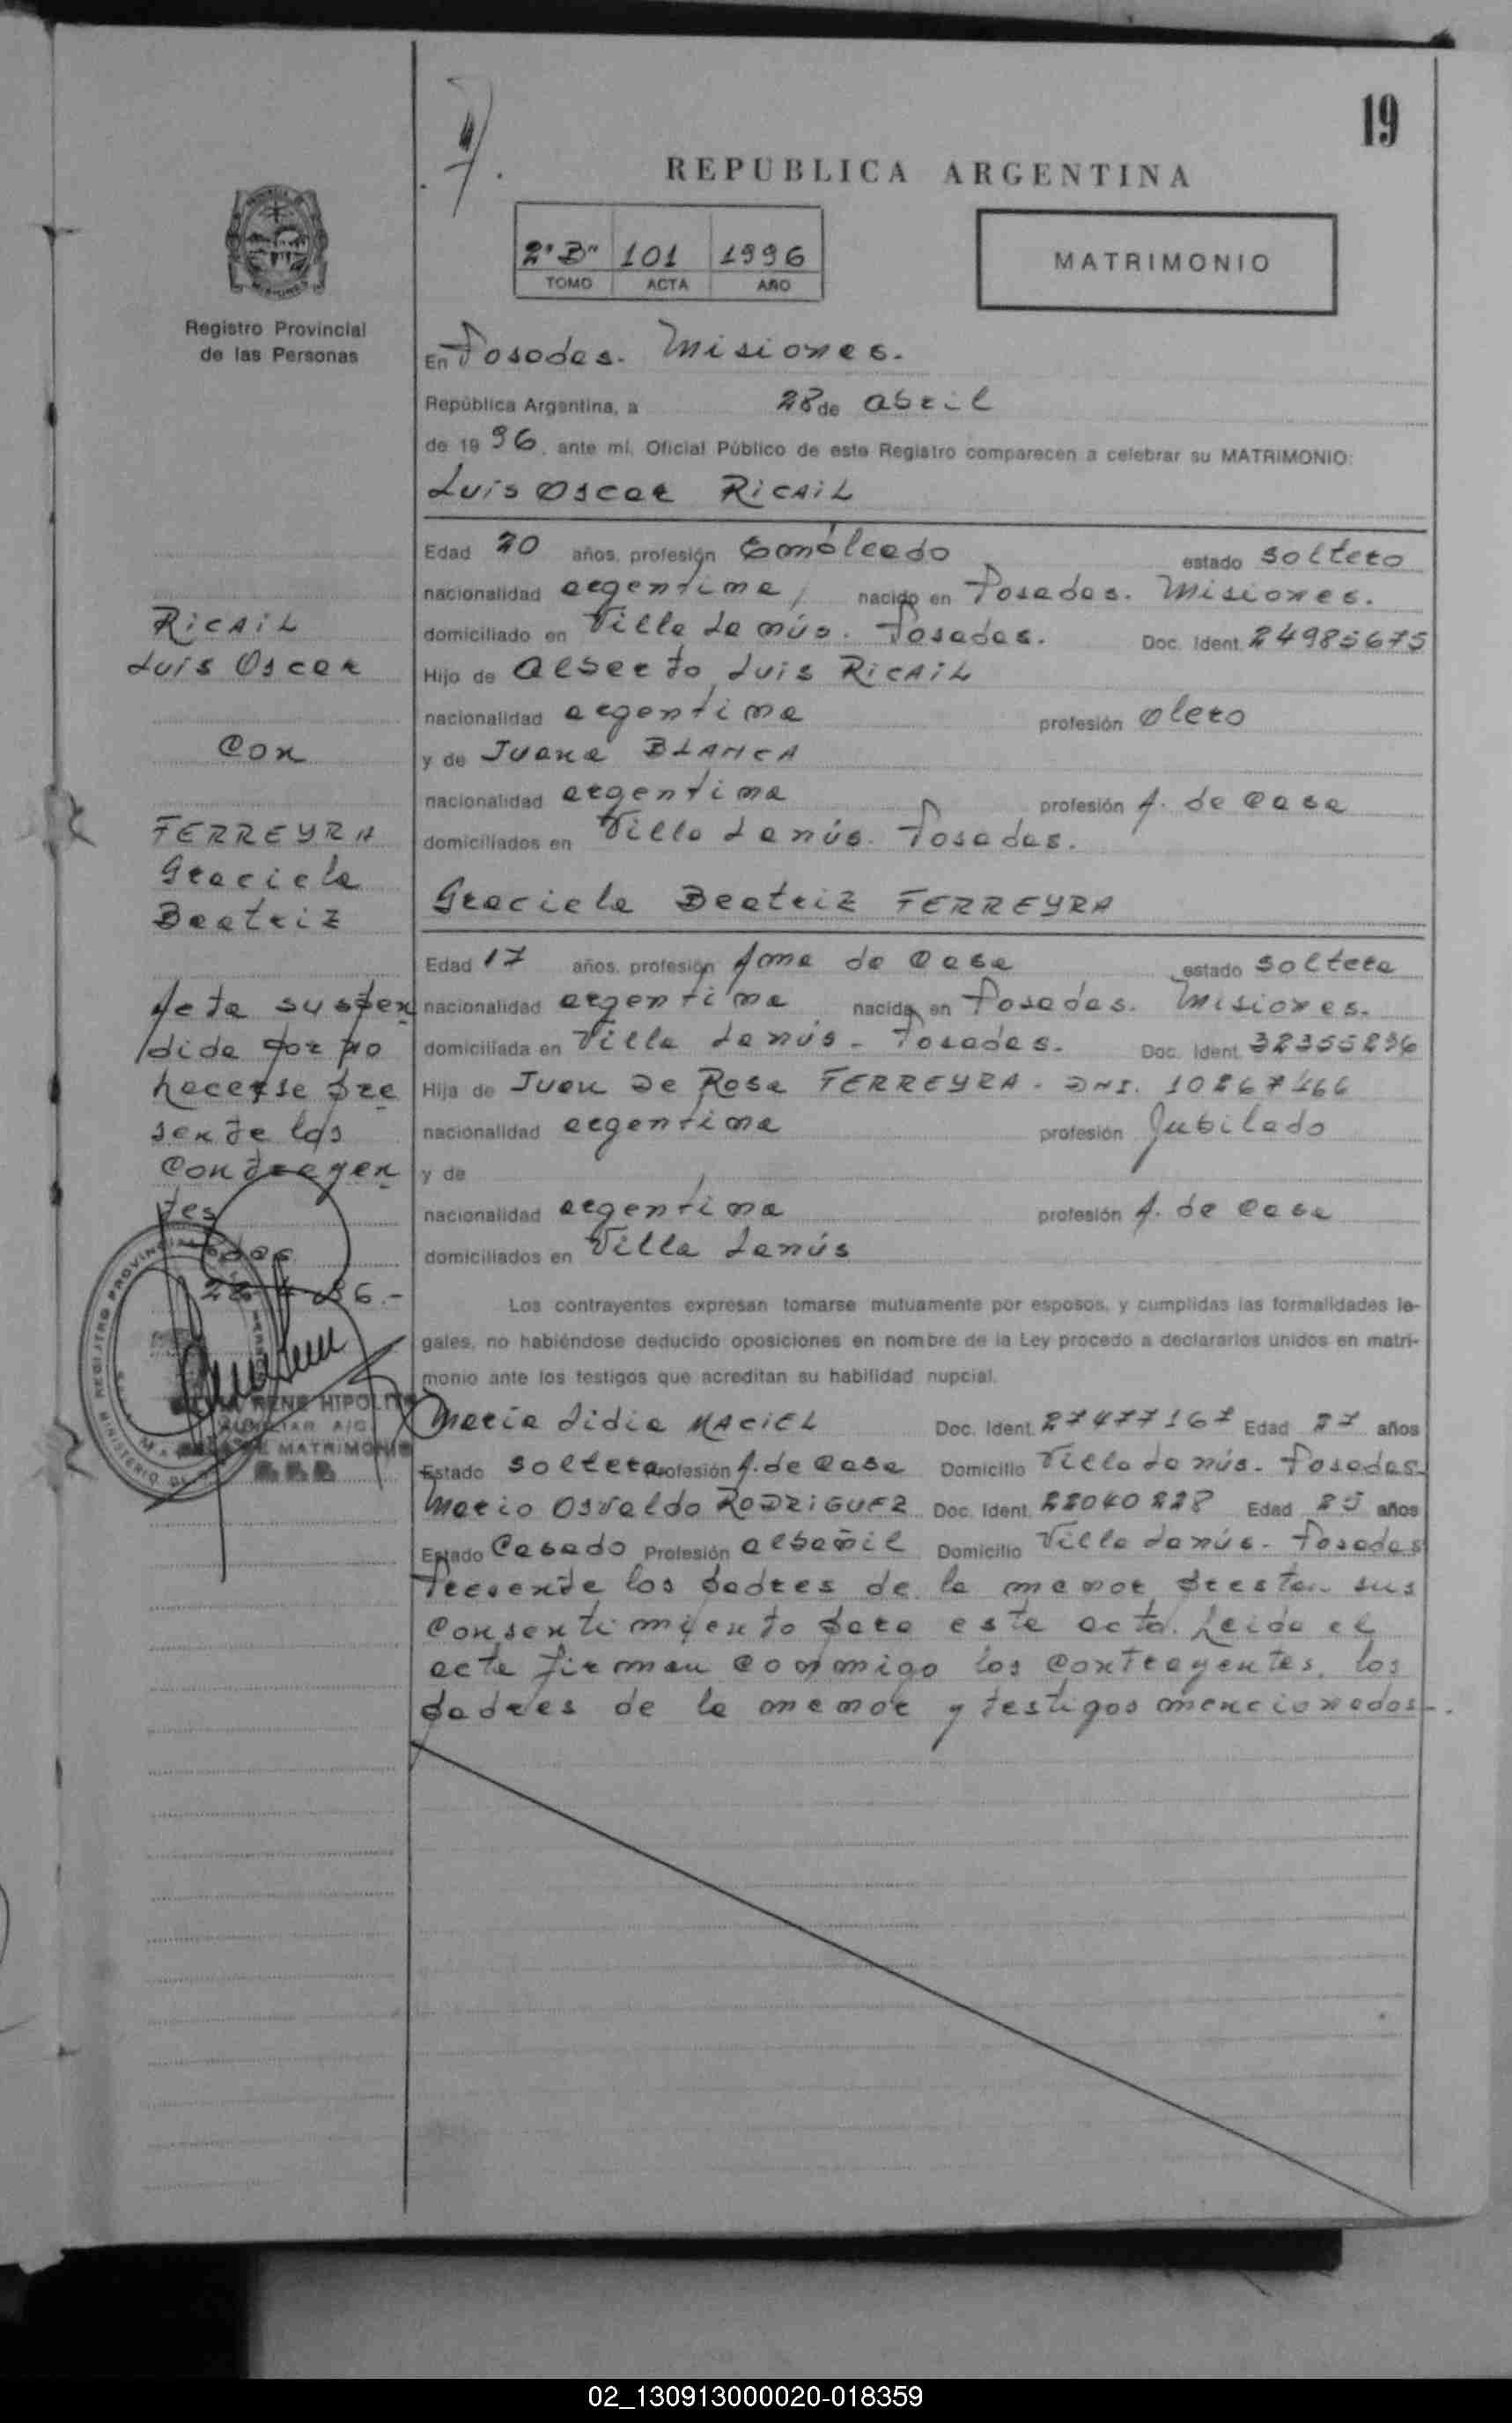 19
REPUBLICA ARGENTINA
2º"B" 101 1996
TOMO ACTA AÑO
MATRIMONIO
Registro Provincial
de las Personas
En Posadas. Misiones.
República Argentina, a 28 de abril
de 1996, ante mí, Oficial Público de este Registro comparecen a celebrar su MATRIMONIO:
Luis Oscar RICAIL
Edad 20 años, profesión Empleado estado soltero
nacionalidad argentina, nacido en Posadas. Misiones.
domiciliado en Villa Lanús. Posadas. Doc. Ident. 24985675
Hijo de Alberto Luis RICAIL
nacionalidad argentina profesión olero
y de Juana BLANCA
nacionalidad argentina profesión A. de casa
domiciliados en Villa Lanús. Posadas.
Graciela Beatriz FERREYRA
Edad 17 años, profesión Ama de casa estado soltera
nacionalidad argentina nacida en Posadas. Misiones.
domiciliada en Villa Lanús - Posadas. Doc. Ident. 32355296
Hija de Juan De Rosa FERREYRA. DNI. 10267466
nacionalidad argentina profesión Jubilado
y de
nacionalidad argentina profesión A. de casa
domiciliados en Villa Lanús
Los contrayentes expresan tomarse mutuamente por esposos, y cumplidas las formalidades le-
gales, no habiéndose deducido oposiciones en nombre de la Ley procedo a declararlos unidos en matri-
monio ante los testigos que acreditan su habilidad nupcial.
María Lidia MACIEL Doc. Ident. 27477167 Edad 27 años
Estado soltera profesión A. de casa Domicilio Villa Lanús - Posadas
Mario Osvaldo RODRIGUEZ Doc. Ident. 22040228 Edad 25 años
Estado Casado Profesión albañil Domicilio Villa Lanús - Posadas
Presente los padres de la menor prestan sus
consentimiento para este acto. Leida el
acta firman conmigo los contrayentes, los
padres de la menor y testigos mencionados-.
RICAIL
Luis Oscar
Con
FERREYRA
Graciela
Beatriz
Acta suspen
dida por no
hacerse pre
sente los
contrayen
tes
RENE HIPOLITO
AUXILIAR A/C
MATRIMONIO
02_130913000020-018359